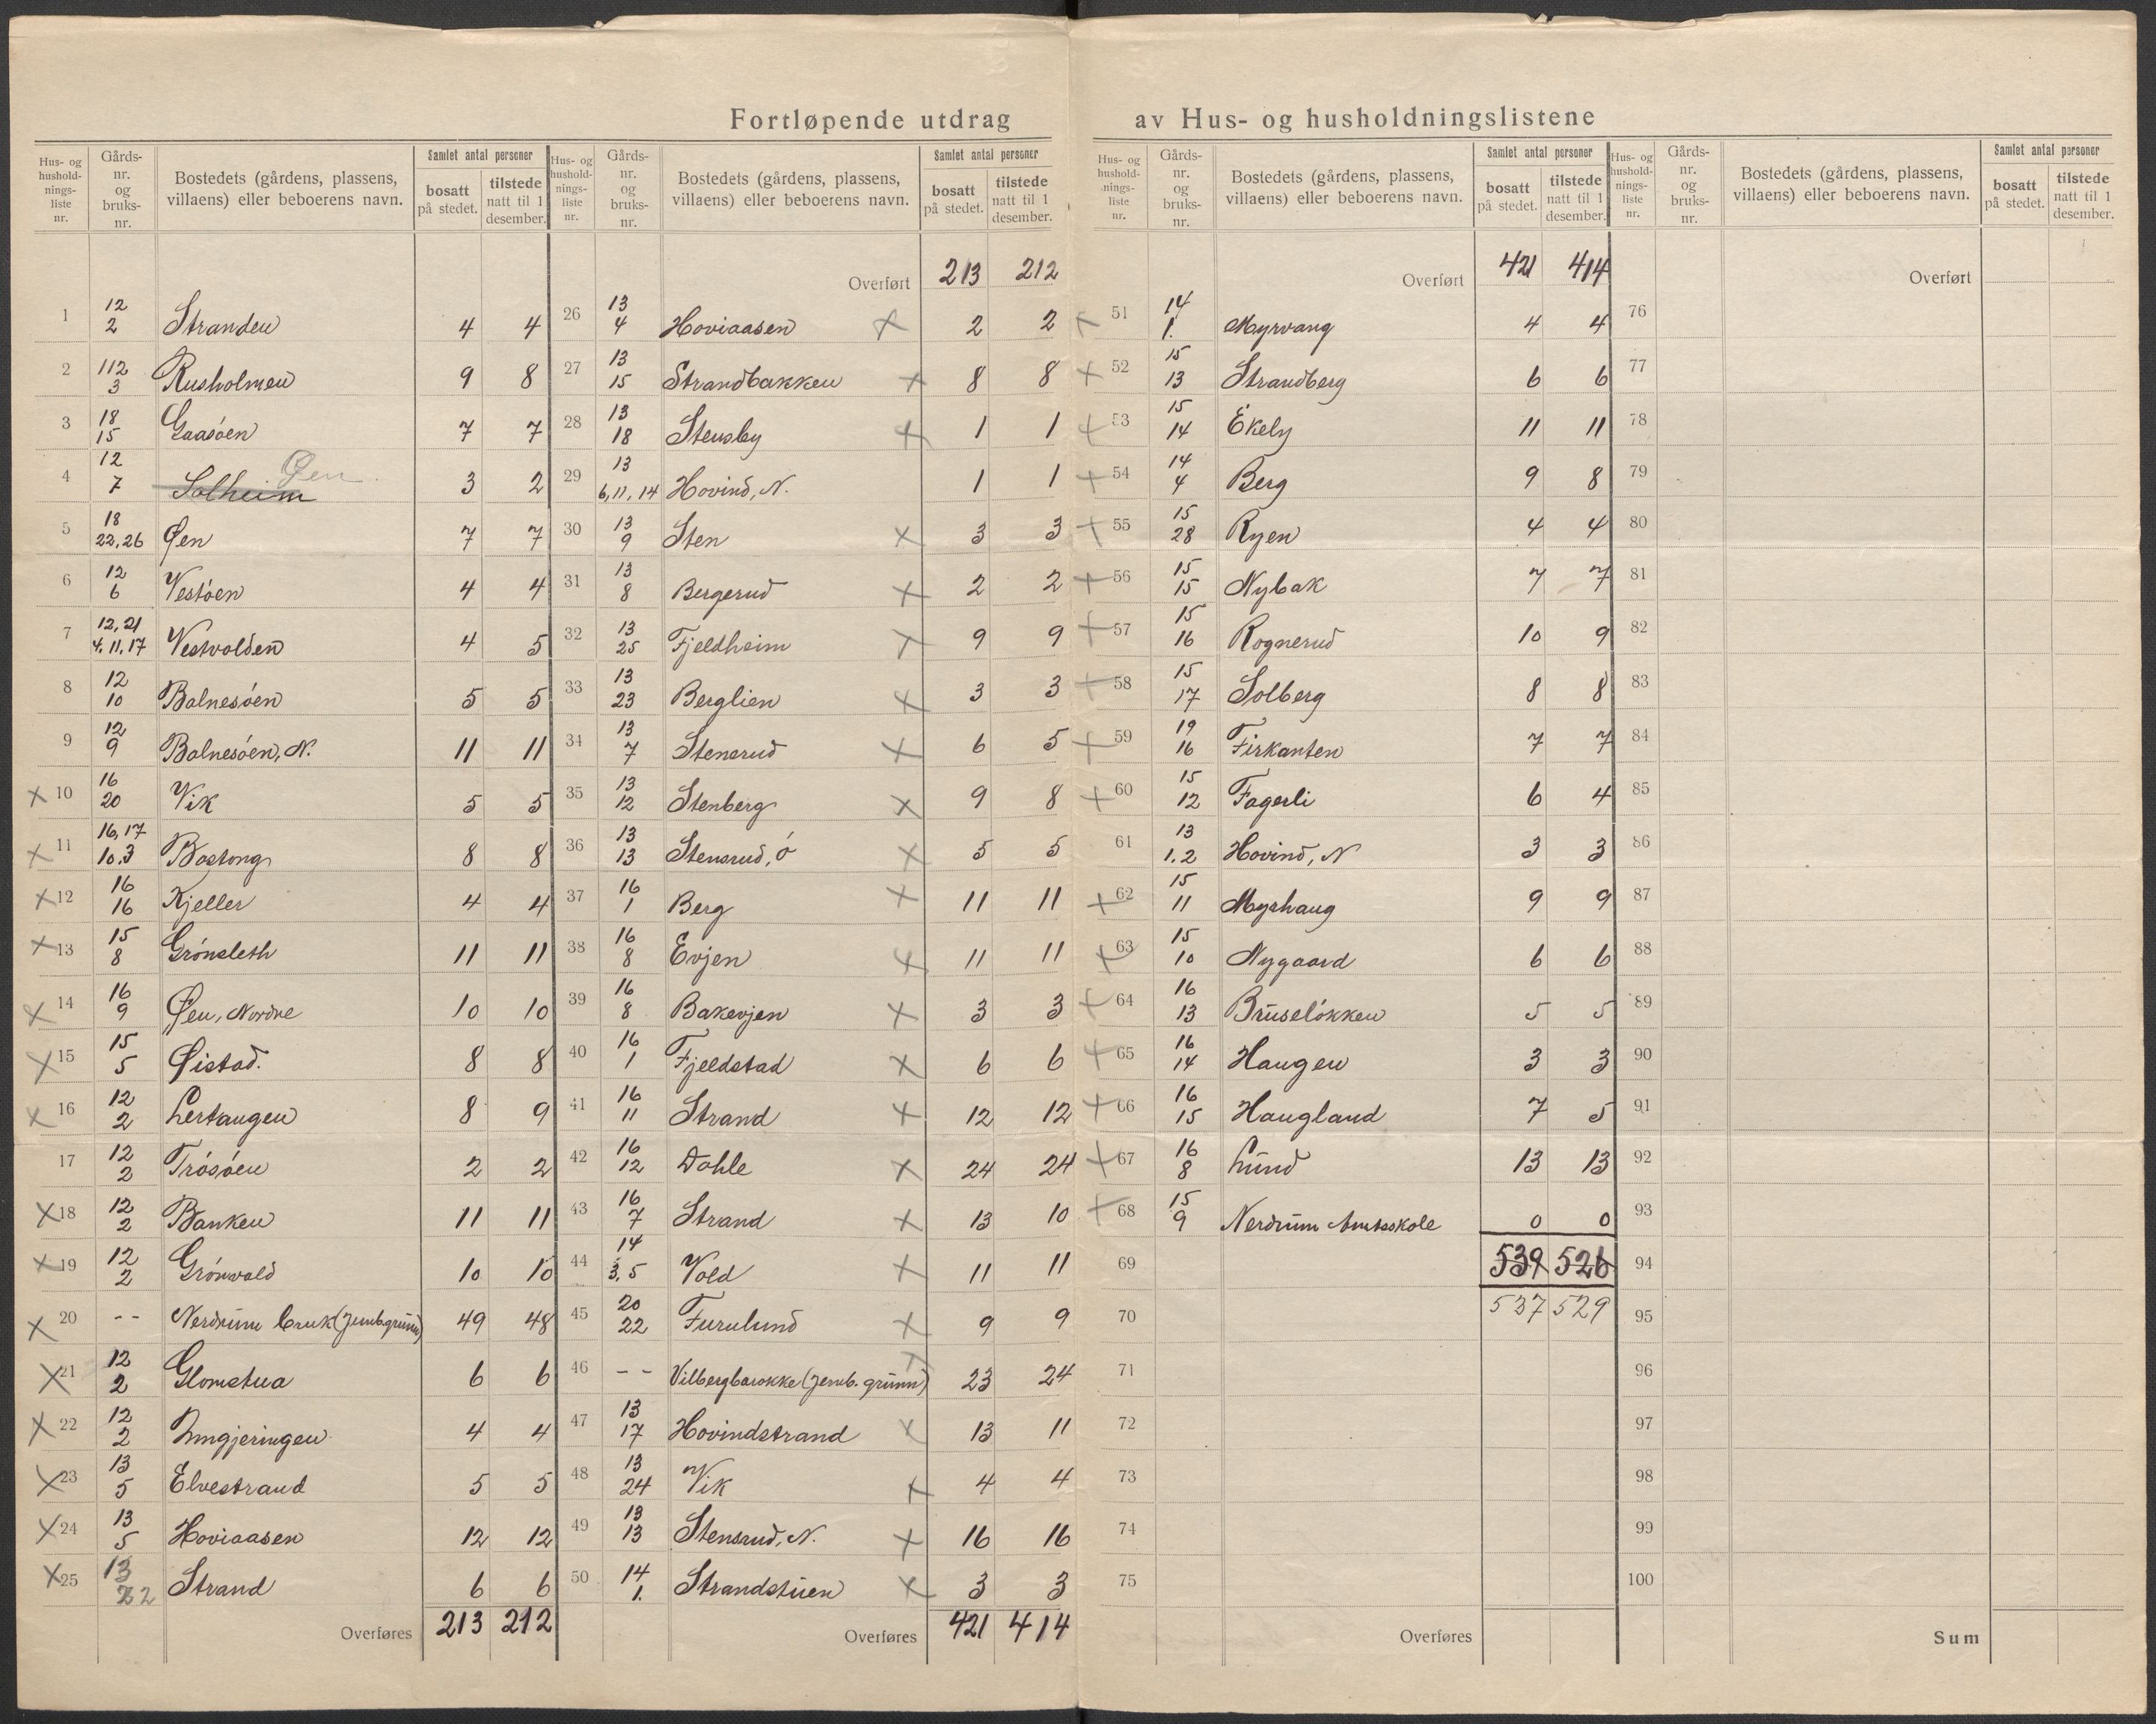 Fortløpende utdrag av Hus- og husholdningslistene
Hus- og hushold- nings- liste nr. | Gårds- nr. og bruks- nr. | Bostedets (gårdens, plassens, villaens) eller beboerens navn. | Samlet antal personer | bosatt på stedet. | tilstede natt til 1 desember.
1 | 12 2 | Stranden | 4 | 4
2 | 112 3 | Rusholmen | 9 | 8
3 | 18 15 | Gaasøen | 7 | 7
4 | 12 7 | Solheim Øen | 3 | 2
5 | 18 22,26 | Øen | 7 | 7
6 | 12 6 | Vestøen | 4 | 4
7 | 12,21 4,11,17 | Vestvolden | 4 | 5
8 | 12 10 | Balnesøen | 5 | 5
9 | 12 9 | Balnesøen, N. | 11 | 11
x 10 | 16 20 | Vik | 5 | 5
x 11 | 16,17 10.3 | Bostong | 8 | 8
x 12 | 16 16 | Kjeller | 4 | 4
x 13 | 15 8 | Grönsleth | 11 | 11
x 14 | 16 9 | Øen, Nordre | 10 | 10
x 15 | 15 5 | Øistad. | 8 | 8
x 16 | 12 2 | Lertangen | 8 | 9
17 | 12 2 | Trøsøen | 2 | 2
x 18 | 12 2 | Banken | 11 | 11
x 19 | 12 2 | Grönvold | 10 | 10
x 20 | -- | Nerdrum bruk (Jernb.grunn) | 49 | 48
x 21 | 12 2 | Glomstua | 6 | 6
x 22 | 12 2 | Inngjeringen | 4 | 4
x 23 | 13 5 | Elvestrand | 5 | 5
x 24 | 13 5 | Hoviaasen | 12 | 12
x 25 | 13 22 | Strand | 6 | 6
Overføres | 213 | 212
Hus- og hushold- nings- liste nr. | Gårds- nr. og bruks- nr. | Bostedets (gårdens, plassens, villaens) eller beboerens navn. | Samlet antal personer | bosatt på stedet. | tilstede natt til 1 desember.
Overført | 213 | 212
26 | 13 4 | Hoviaasen x | 2 | 2
27 | 13 15 | Strandbakken x | 8 | 8
28 | 13 18 | Stensby x | 1 | 1
29 | 13 6,11,14 | Hovind, N. | 1 | 1
30 | 13 9 | Sten x | 3 | 3
31 | 13 8 | Bergerud x | 2 | 2
32 | 13 25 | Fjeldheim x | 9 | 9
33 | 13 23 | Berglien x | 3 | 3
34 | 13 7 | Stensrud x | 6 | 5
35 | 13 12 | Stenberg x | 9 | 8
36 | 13 13 | Stensrud, ö x | 5 | 5
37 | 16 1 | Berg x | 11 | 11
38 | 16 8 | Evjen x | 11 | 11
39 | 16 8 | Bakevjen x | 3 | 3
40 | 16 1 | Fjeldstad x | 6 | 6
41 | 16 11 | Strand x | 12 | 12
42 | 16 12 | Dahle x | 24 | 24
43 | 16 7 | Strand x | 13 | 10
44 | 14 3,5 | Vold x | 11 | 11
45 | 20 22 | Furulund x | 9 | 9
46 | -- | Vilbergbarakke (Jernb. grunn) x | 23 | 24
47 | 13 17 | Hovindstrand x | 13 | 11
48 | 13 24 | Vik x | 4 | 4
49 | 13 13 | Stensrud, N. x | 16 | 16
50 | 14 1. | Strandstuen x | 3 | 3
Overføres | 421 | 414
Hus- og hushold- nings- liste nr. | Gårds- nr. og bruks- nr. | Bostedets (gårdens, plassens, villaens) eller beboerens navn. | Samlet antal personer | bosatt på stedet. | tilstede natt til 1 desember.
Overført | 421 | 414
x 51 | 14 1. | Myrvang | 4 | 4
x 52 | 15 13 | Strandberg | 6 | 6
x 53 | 15 14 | Ekely | 11 | 11
x 54 | 14 4 | Berg | 9 | 8
x 55 | 15 28 | Ryen | 4 | 4
x 56 | 15 15 | Nybak | 7 | 7
x 57 | 15 16 | Rognerud | 10 | 9
x 58 | 15 17 | Solberg | 8 | 8
x 59 | 19 16 | Firkanten | 7 | 7
x 60 | 15 12 | Fagerli | 6 | 4
61 | 13 1.2 | Hovind, N | 3 | 3
x 62 | 15 11 | Myrhaug | 9 | 9
x 63 | 15 10 | Nygaard | 6 | 6
x 64 | 16 13 | Bruseløkken | 5 | 5
x 65 | 16 14 | Haugen | 3 | 3
x 66 | 16 15 | Haugland | 7 | 5
x 67 | 16 8 | Lund | 13 | 13
x 68 | 15 9 | Nerdrum Amtsskole | 0 | 0
69 | 539 | 526
70 | 537 | 529
71
72
73
74
75
Overføres
Hus- og hushold- nings- liste nr. | Gårds- nr. og bruks- nr. | Bostedets (gårdens, plassens, villaens) eller beboerens navn. | Samlet antal personer | bosatt på stedet. | tilstede natt til 1 desember.
Overført
76
77
78
79
80
81
82
83
84
85
86
87
88
89
90
91
92
93
94
95
96
97
98
99
100
Sum